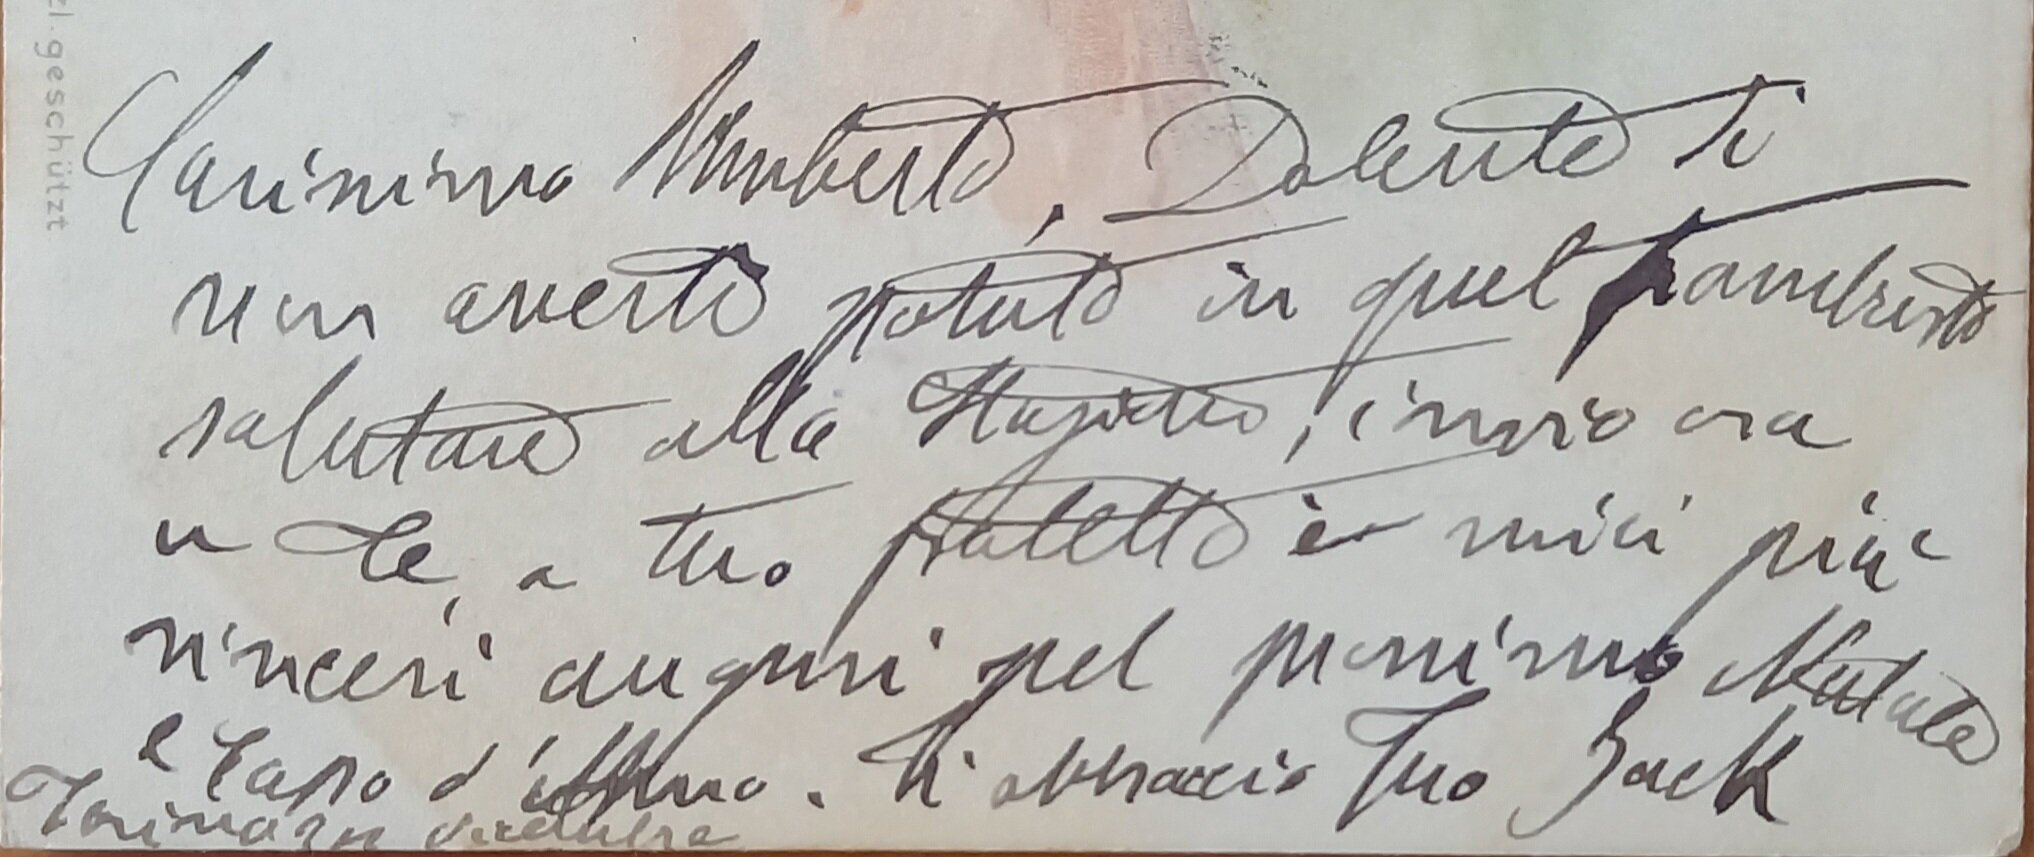 Carissimo Umberto, Dolente di
non averti potuto in quel trambusto
salutare alla Stazione, invio ora
a te, a tuo fratello e miei più
sinceri auguri pel prossimo Natale
e Capo d'Anno. Ti abbraccio Tuo Jack
Torino dicembre
zl. geschützt